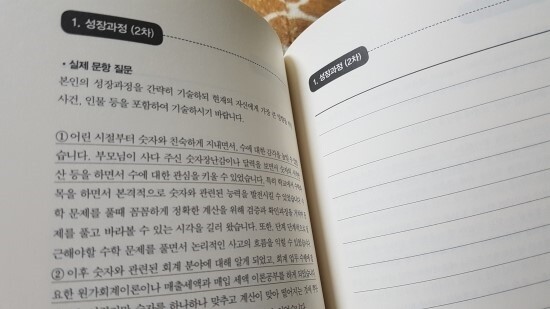 1. 성장과정 (2차)
• 실제 문항 질문
본인의 성장과정을 간략히 기술하되 현재의 자신에게 가장 큰
사건, 인물 등을 포함하여 기술하시기 바랍니다.
① 어린 시절부터 숫자와 친숙하게 지내면서, 수에 대한 감각을
습니다. 부모님이 사다 주신 숫자장난감이나 달력을 보면서 숫자와
산 등을 하면서 수에 대한 관심을 키울 수 있었습니다. 특히 학교에서
목을 하면서 본격적으로 숫자와 관련된 능력을 발전시킬 수 있었
학 문제를 풀때 꼼꼼하게 정확한 계산을 위해 검증과 확인과정을 거치며
제를 풀고 바라볼 수 있는 시각을 길러 왔습니다. 또한, 단계 단계
근해야할 수학 문제를 풀면서 논리적인 사고의 흐름을 익힐 수 있었습니
② 이후 숫자와 관련된 회계 분야에 대해 알게 되었고, 회계 업무
요한 원가회계이론이나 매출세액과 매입 세액 이론공부를 하게 되었습
숫자를 하나하나 맞추고 계산이 맞아 떨어지는
1. 성장과정 (2차)